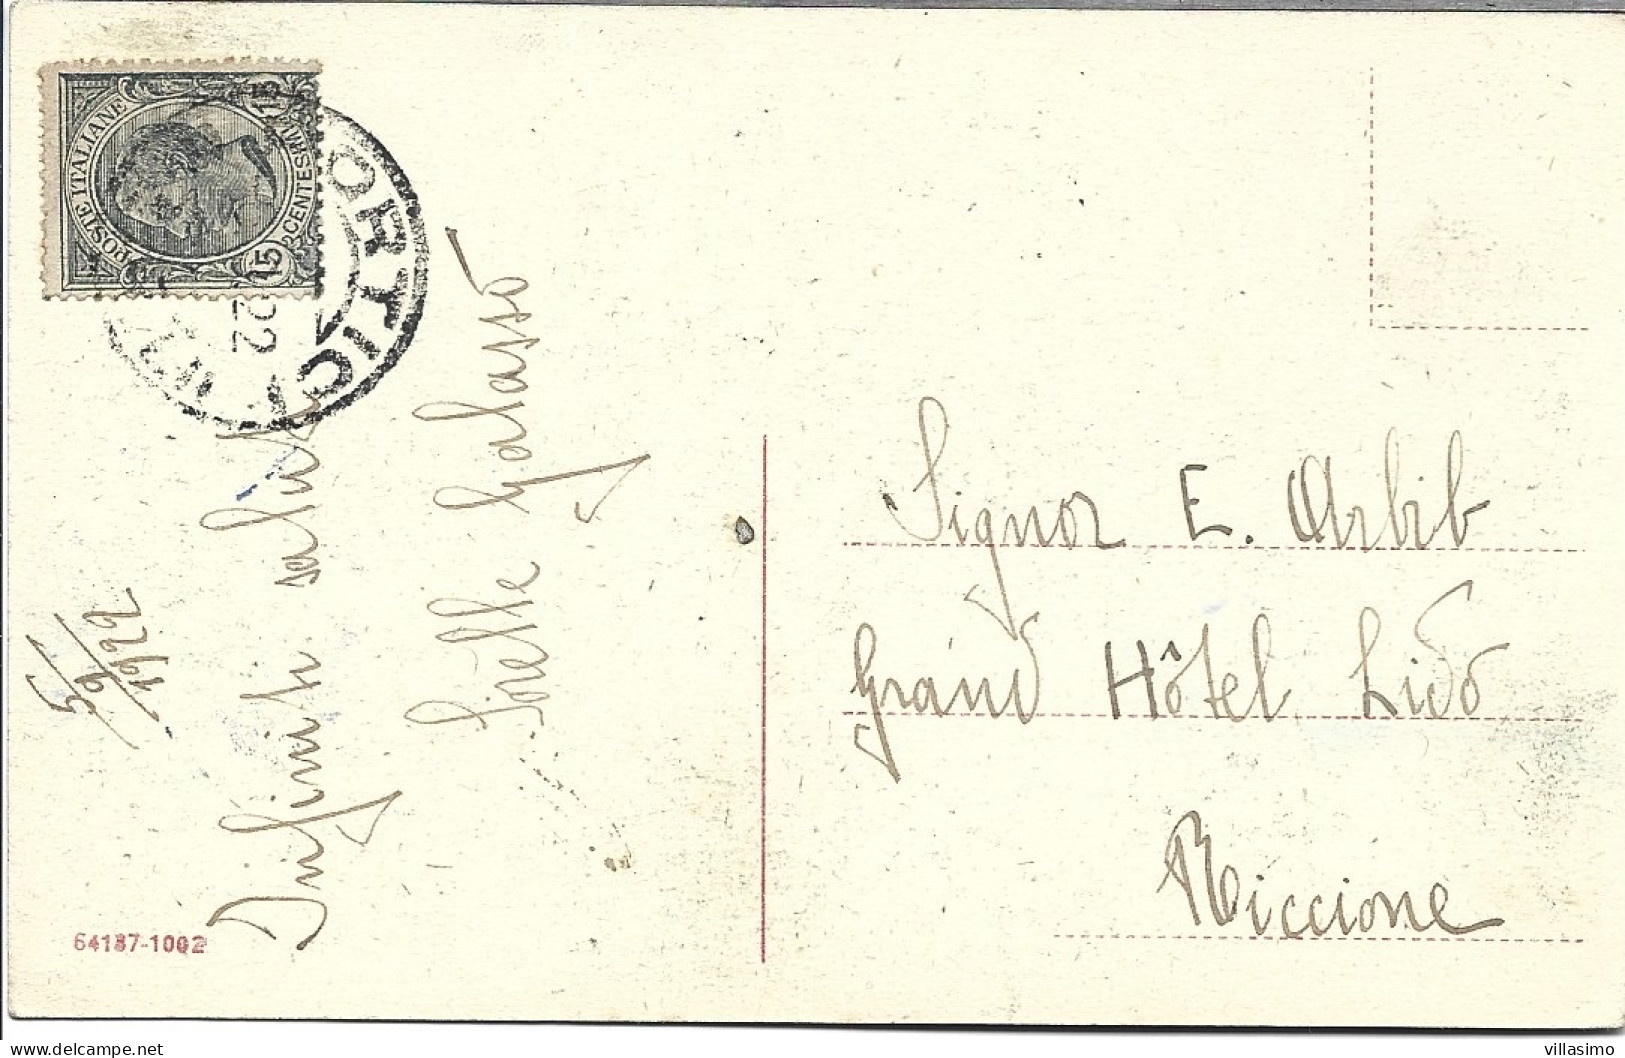 POSTE ITALIANE
CENTESIMI 15
15
ORTICI
22
5/9 1922
Infiniti saluti
Sorelle Galasso
Signor E. Arbib
Grand Hôtel Lido
Riccione
64187-1002
delcampe.net
villasimo